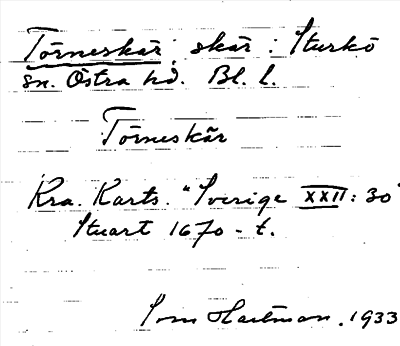 Törneskär; skär i Sturkö
sn. Östra hd. Bl. l.
Törneskär
Kra. Karts. "Sverige XXII: 30"
Stuart 1670 - t.
Hartman. 1933